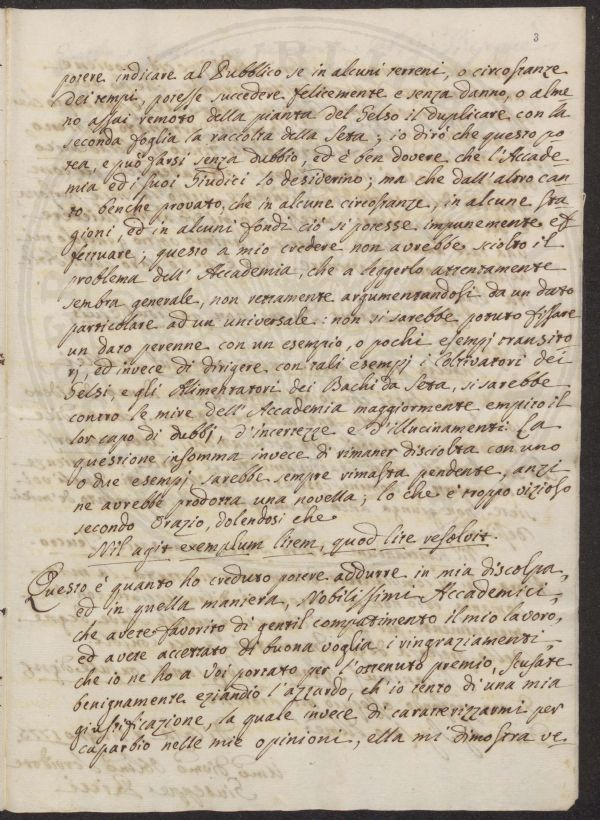 3
potere indicare al Pubblico se in alcuni terreni, o circostanze
dei tempi, potesse succedere felicemente e senza danno, o alme
no assai remoto della pianta del Gelso il duplicare con la
seconda foglia la raccolta della Seta; io dirò che questo po
tea, e può farsi senza dubbio, ed è ben dovere che l'Accade
mia ed i suoi Giudici lo desiderino; ma che dall'altro can
to, benche provato, che in alcune circostanze, in alcune sta
gioni, ed in alcuni fondi ciò si potesse impunemente ef
fettuare; questo a mio credere non avrebbe sciolto il
problema dell'Accademia, che a leggerlo attentamente
sembra generale, non rettamente argumentandosi da un dato
particolare ad un universale: non si sarebbe potuto fissare
un dato perenne con un esempio, o pochi esempj transito
rj, ed invece di dirigere con tali esempj i Coltivatori dei
Gelsi, e gli Alimentatori dei Bachi da Seta, si sarebbe
contro le mire dell'Accademia maggiormente empito il
lor capo di dubbj, d'incertezze e d'illucinamenti. La
questione insomma invece di rimaner disciolta con uno
o due esempj sarebbe sempre rimasta pendente, anzi
ne avrebbe prodotta una novella; lo che è troppo vizioso
secondo Orazio, dolendosi che
Nil agit exemplum litem, quod lite resolvit.
Questo è quanto ho creduto potere addurre in mia discolpa,
ed in quella maniera, Nobilissimi Accademici,
che avete favorito di gentil compatimento il mio lavoro,
ed avete accettato di buona voglia i ringraziamenti,
che io ne ho a Voi portato per l'ottenuto premio, scusate
benignamente eziandio l'azzardo, ch'io tento di una mia
giustificazione, la quale invece di caratterizzarmi per
caparbio nelle mie opinioni, ella mi dimostra ve-